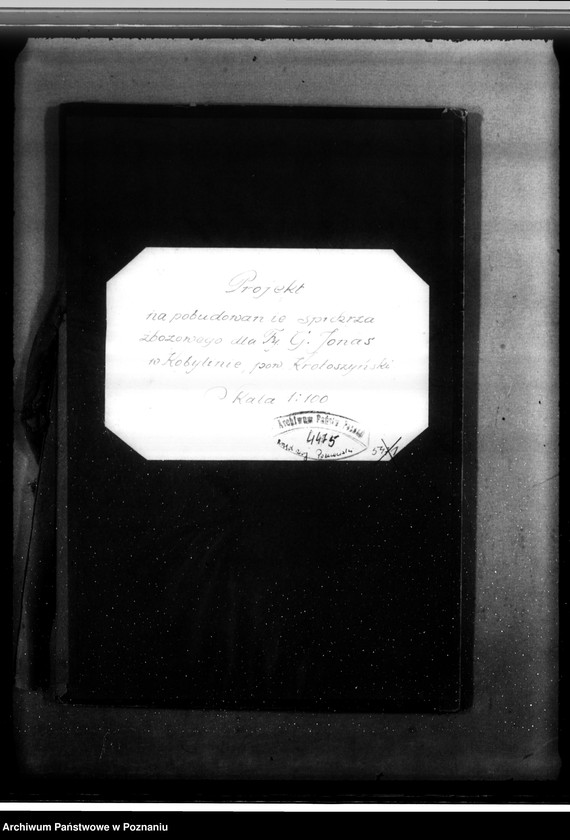 Projekt
na pobudowanie spichrza
zbożowego dla Fy G. Jonas
w Kobylinie, pow. Krotoszyński
Skala 1:100
Archiwum Państw. Poznań
4475
Archiwum Państwowe w Poznaniu